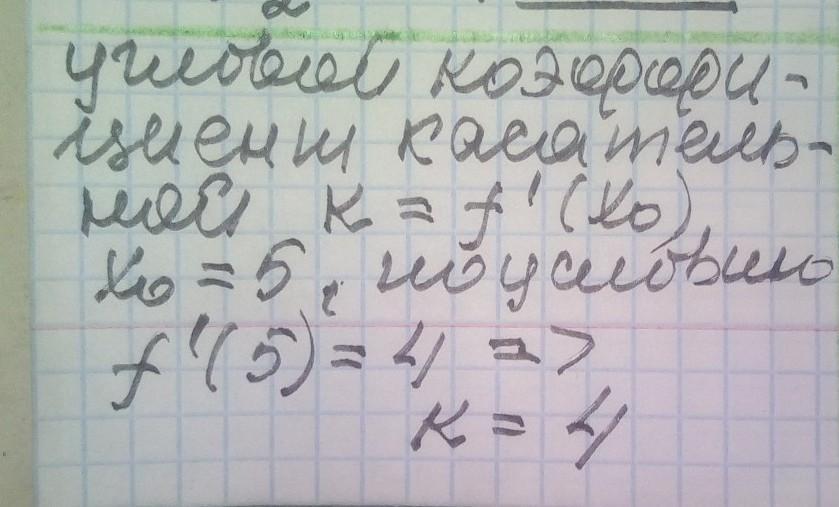 угловой коэффри-
циент касатель-
ной k = f'(x₀),
x₀ = 5, по условию
f'(5) = 4 =>
k = 4